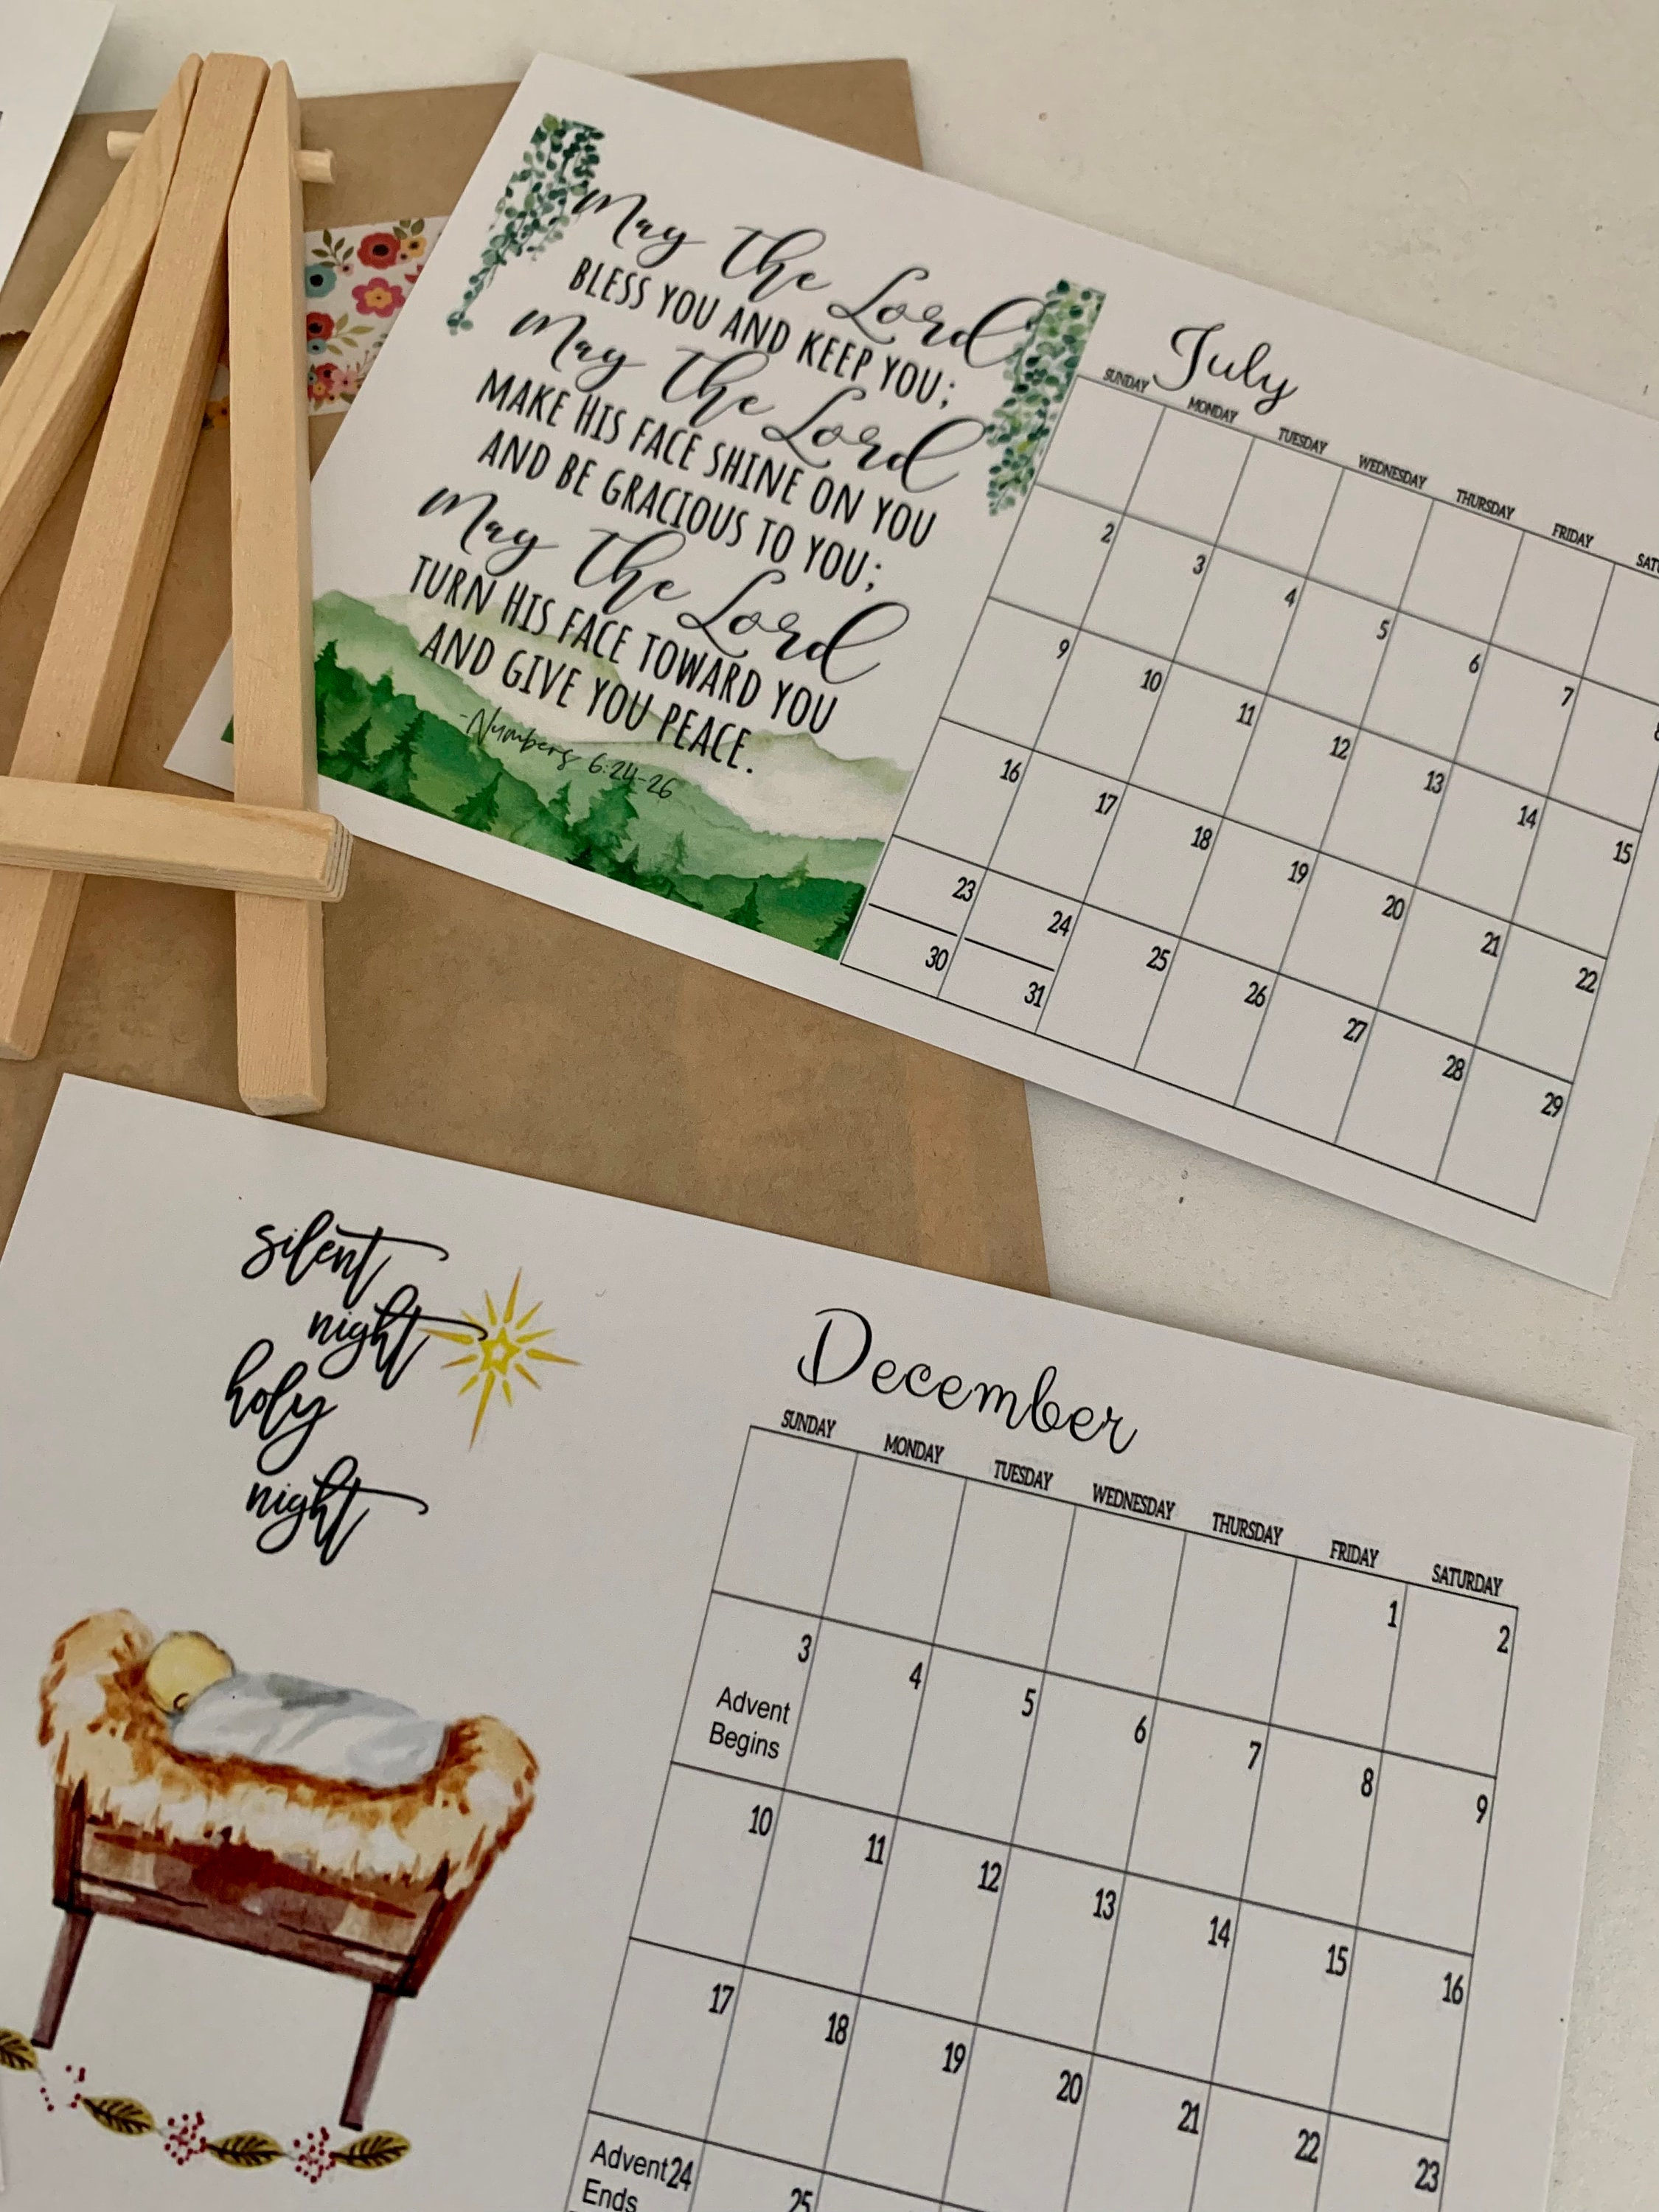 May the Lord
BLESS YOU AND KEEP YOU;
May the Lord
MAKE HIS FACE SHINE ON YOU
AND BE GRACIOUS TO YOU;
May the Lord
TURN HIS FACE TOWARD YOU
AND GIVE YOU PEACE.
-Numbers 6:24-26
July
SUNDAY MONDAY TUESDAY WEDNESDAY THURSDAY FRIDAY
2 3 4 5 6 7
9 10 11 12 13 14 15
16 17 18 19 20 21 22
23 24 25 26 27 28 29
30 31
silent
night
holy
night
December
SUNDAY MONDAY TUESDAY WEDNESDAY THURSDAY FRIDAY SATURDAY
1 2
3 4 5 6 7 8 9
Advent
Begins
10 11 12 13 14 15 16
17 18 19 20 21 22 23
Advent 24 25
Ends